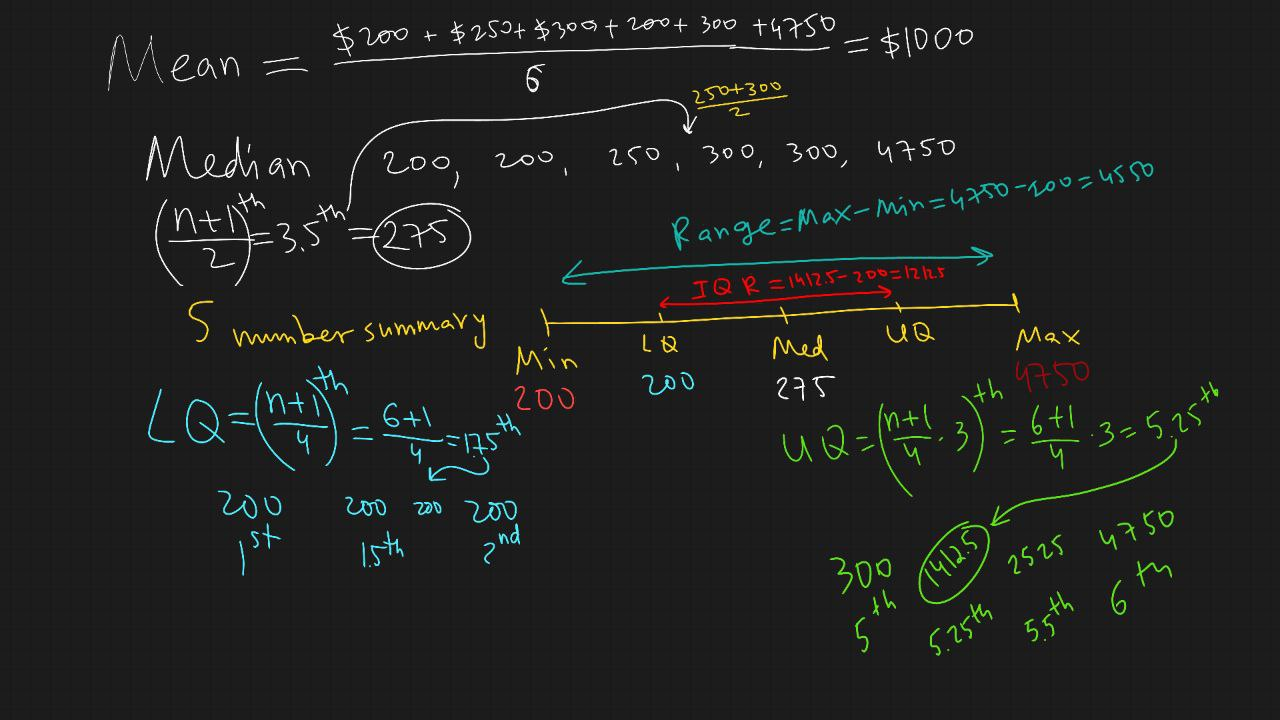 Mean = $200 + $250 + $300 + 200 + 300 + 4750 / 6 = $1000
250+300 / 2
Median 200, 200, 250, 300, 300, 4750
(n+1 / 2)th = 3.5th = 275
Range = Max - Min = 4750 - 200 = 4550
IQR = 1412.5 - 200 = 1212.5
5 number summary
Min LQ Med UQ Max
200 200 275 4750
LQ = (n+1 / 4)th = 6+1 / 4 = 1.75th
200 200 200 200
1st 1.5th 2nd
UQ = (n+1 / 4 · 3)th = 6+1 / 4 · 3 = 5.25th
300 1412.5 2525 4750
5th 5.25th 5.5th 6th